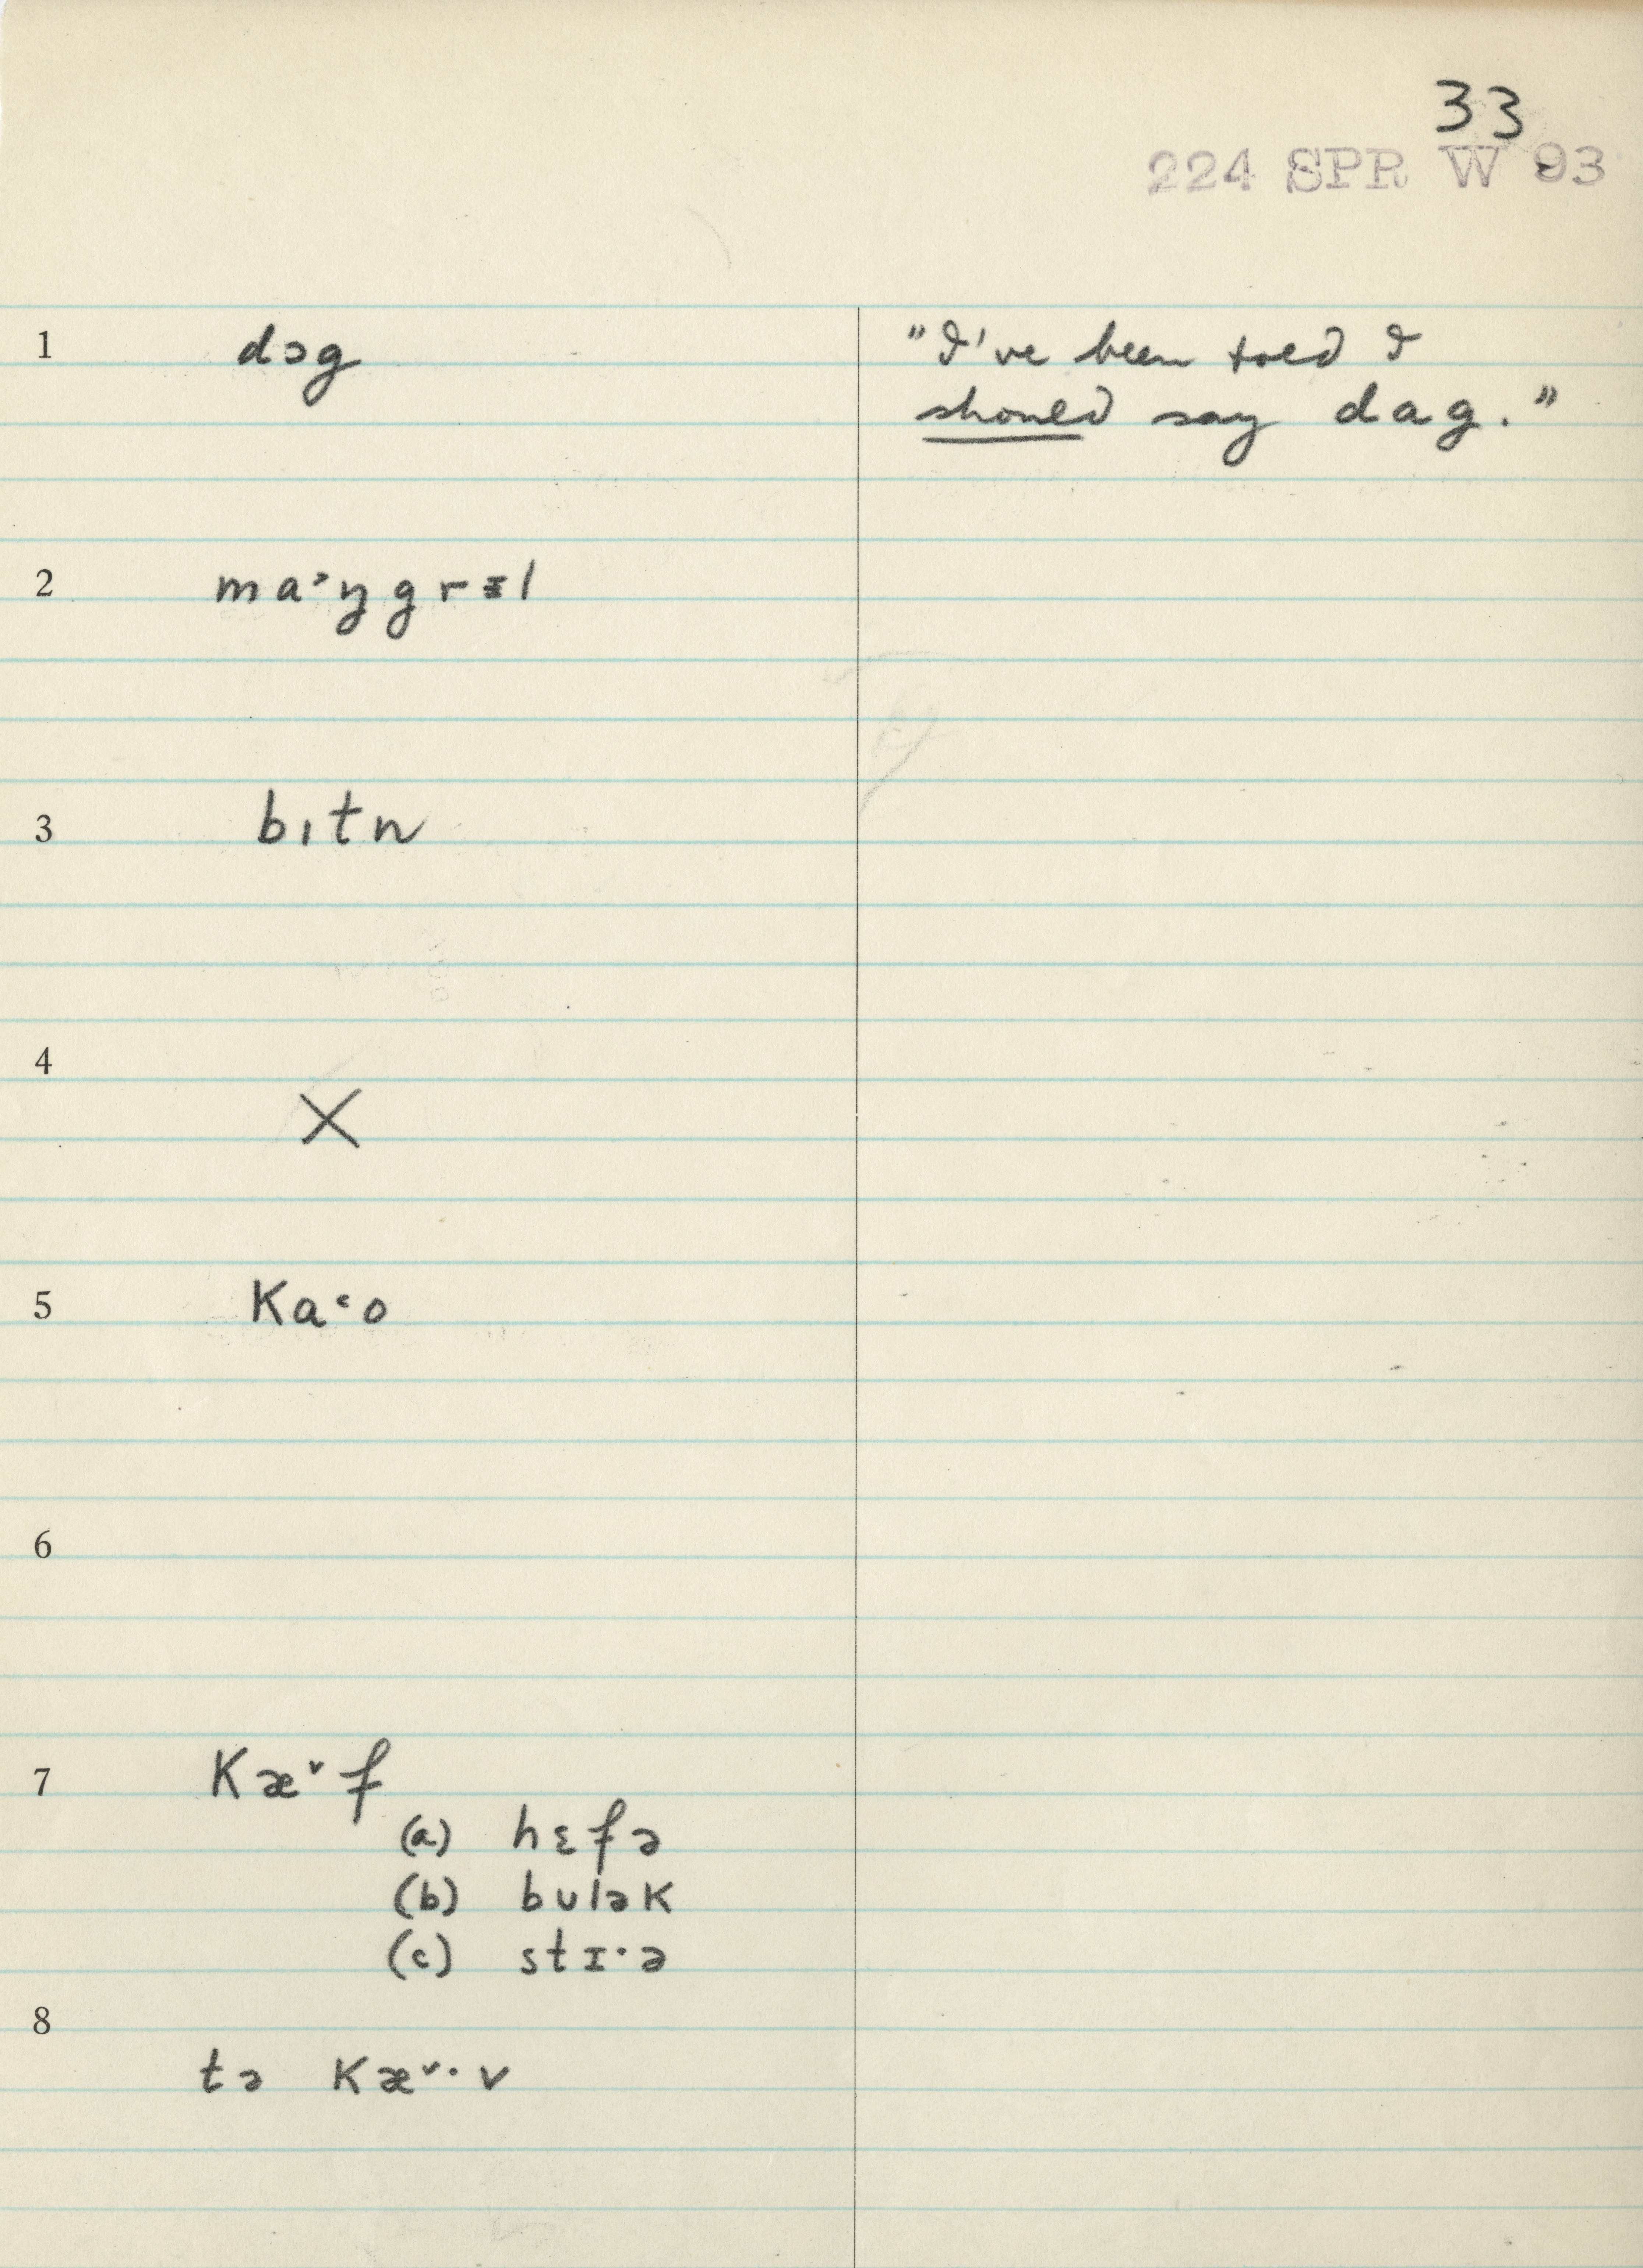 33
224 SPR W 93
1 dɔg "I've been told I
should say dag."
2 ma˃ŋgrɪl
3 bɪtn
4 X
5 ka˂o
6
7 kæ˅f
(a) hɛfə
(b) bulək
(c) stɪ·ə
8
tə kæ˅·v